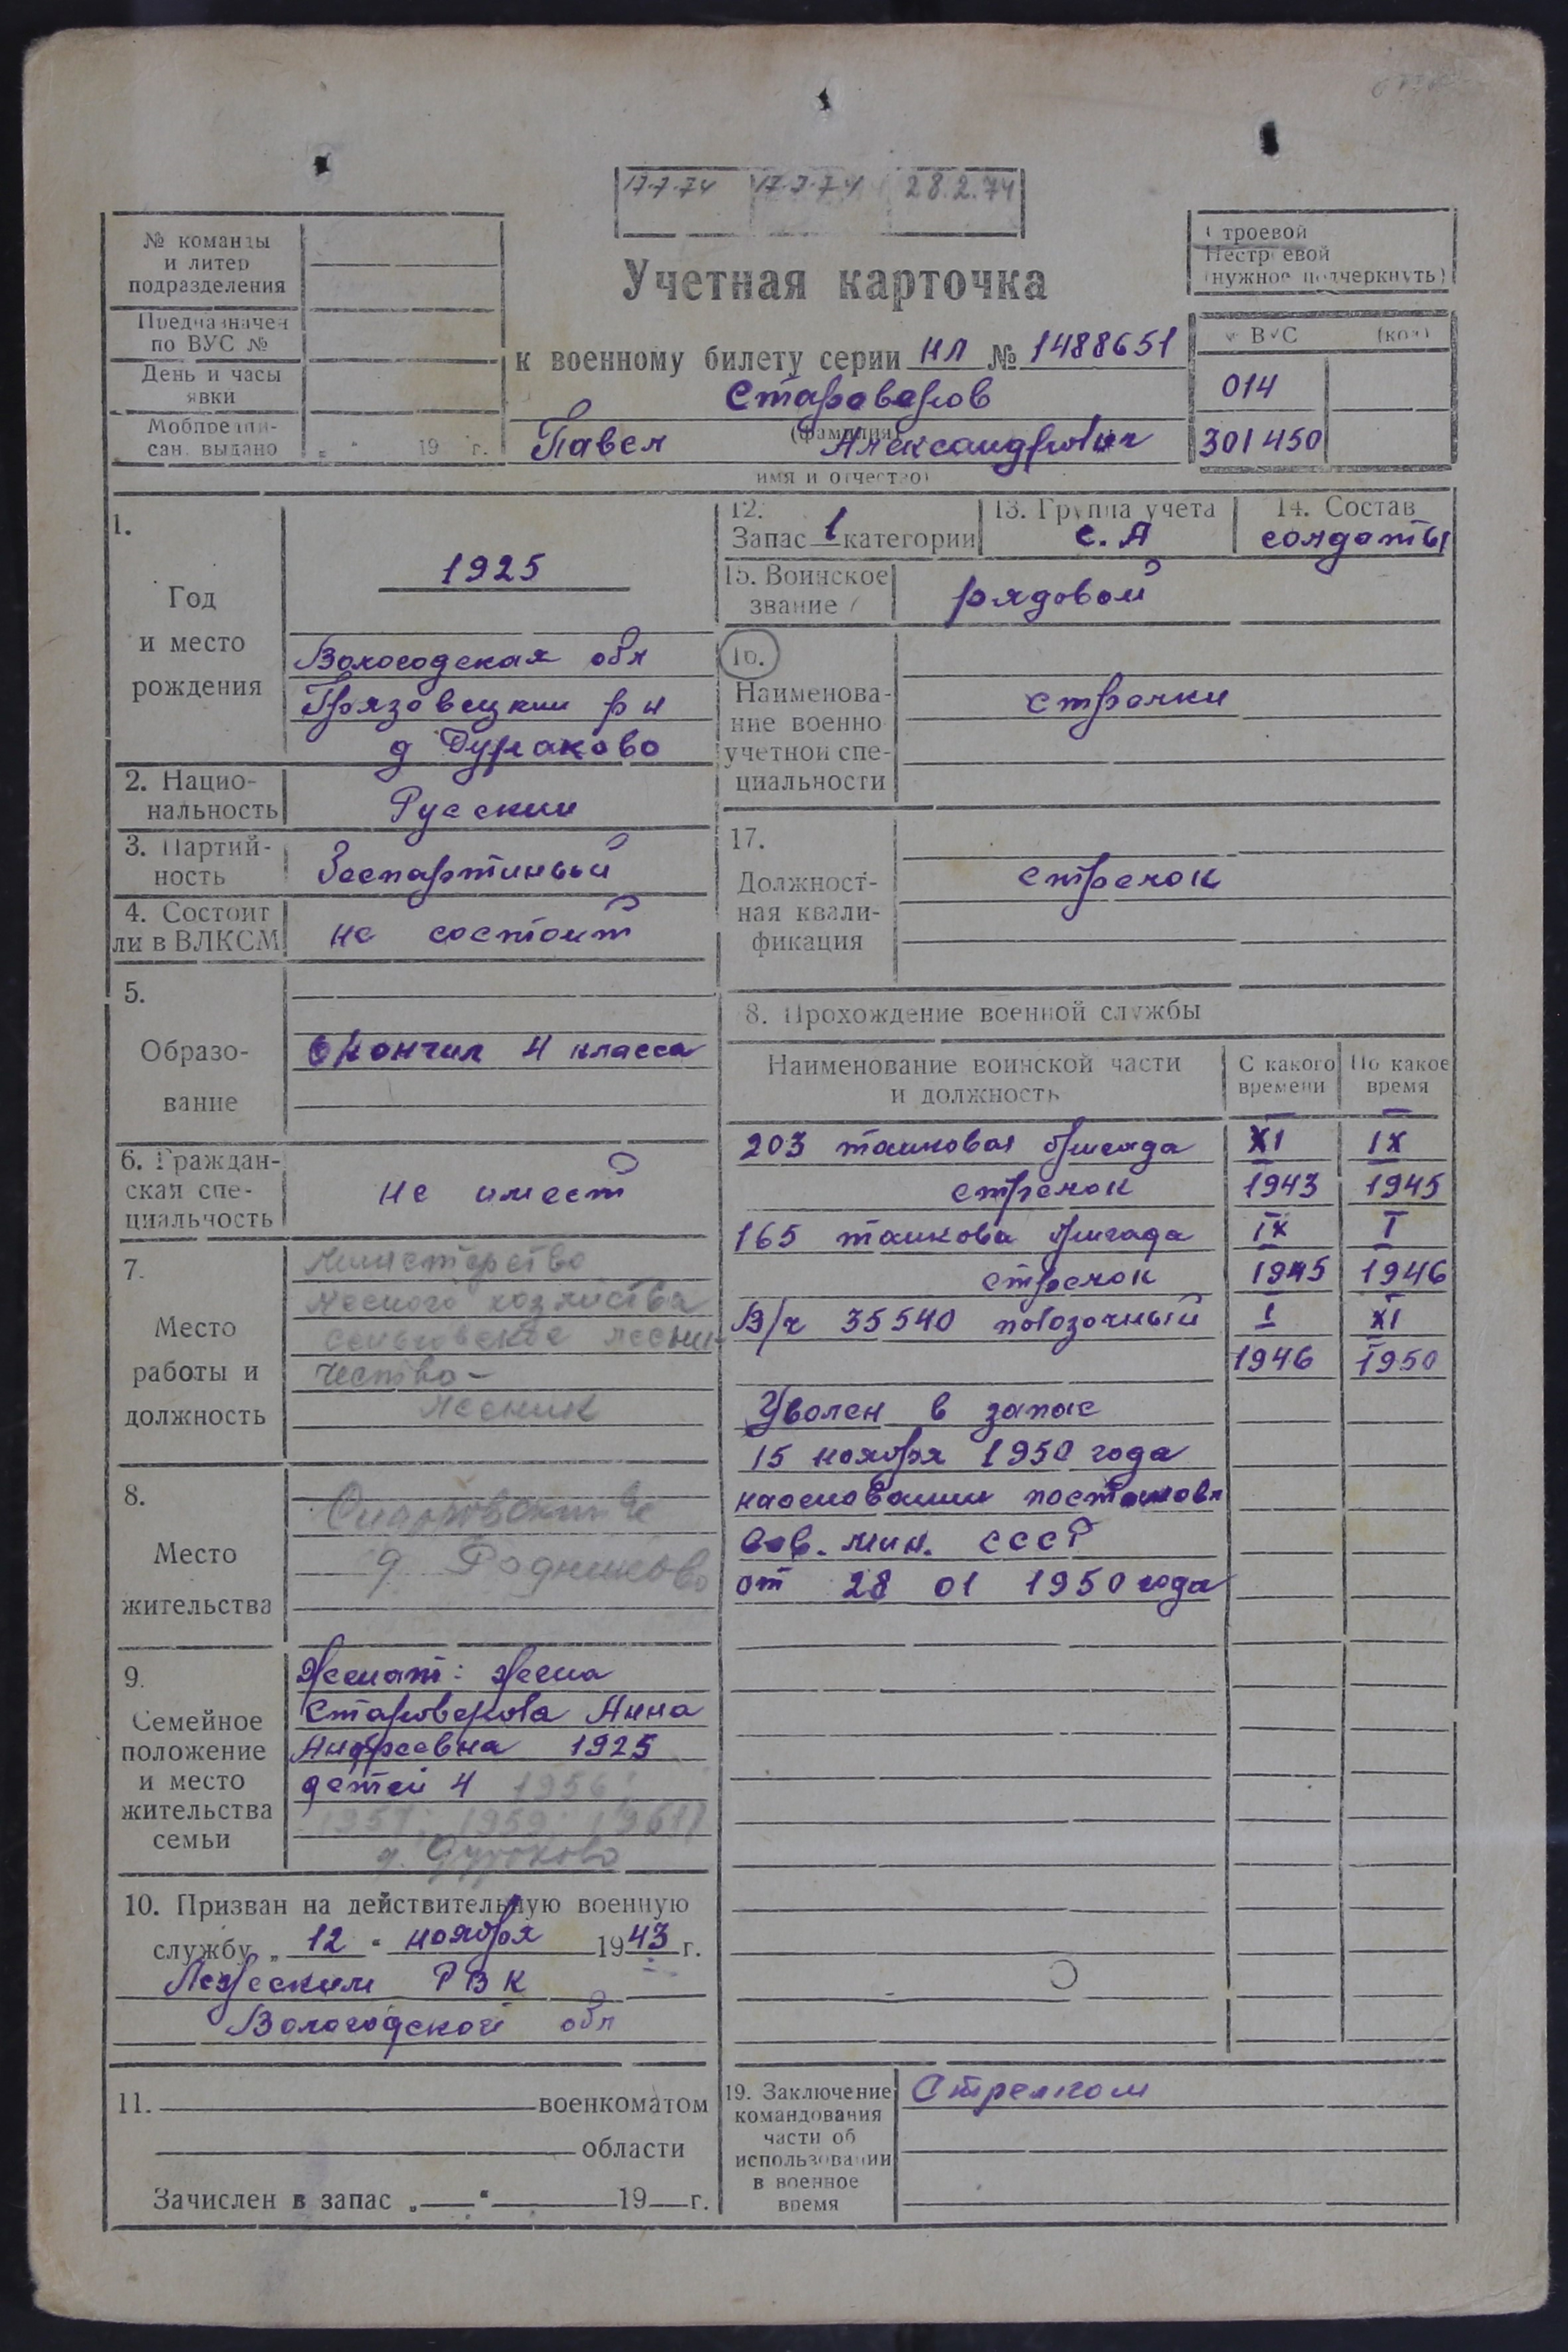 17.7.74 17.7.74 28.2.74
№ команды
и литер
подразделения
Предназначен
по ВУС №
День и часы
явки
Мобпредпи-
сан. выдано
„ " 19 г.
Строевой
Нестроевой
(нужное подчеркнуть)
Учетная карточка
к военному билету серии НЛ № 1488651
Староверов
(фамилия)
Павел Александрович
имя и отчество)
№ ВУС (код)
014
301450
1.
Год
и место
рождения
1925
Вологодская обл
Грязовецкий р н
д Дураково
2. Нацио-
нальность
Русский
3. Партий-
ность
Беспартийный
4. Состоит
ли в ВЛКСМ
не состоит
5.
Образо-
вание
Окончил 4 класса
6. Граждан-
ская спе-
циальность
Не имеет
7.
Место
работы и
должность
Министерство
лесного хозяйства
лесни-
чество-
лесник
8.
Место
жительства
д Родниково
9.
Семейное
положение
и место
жительства
семьи
Женат: жена
Староверова Анна
Андреевна 1925
детей 4 1956
1957; 1959; 1961)
д. Дураково
10. Призван на действительную военную
службу „ 12 " ноября 1943 г.
Лежским РВК
Вологодской обл
11. военкоматом
области
Зачислен в запас „ " 19 г.
12.
Запас 1 категории
13. Группа учета
С. А
14. Состав
солдаты
15. Воинское
звание
рядовой
16.
Наименова-
ние военно
учетной спе-
циальности
стрелки
17.
Должност-
ная квали-
фикация
стрелок
8. Прохождение военной службы
Наименование воинской части
и должность
С какого
времени
По какое
время
203 танковая бригада XI IX
стрелок 1943 1945
165 танкова бригада IX I
стрелок 1945 1946
В/ч 35540 повозочный I XI
1946 1950
Уволен в запас
15 ноября 1950 года
наосновании постановл
Сов. мин. СССР
от 28 01 1950 года
19. Заключение
командования
части об
использовании
в военное
время
Стрелком